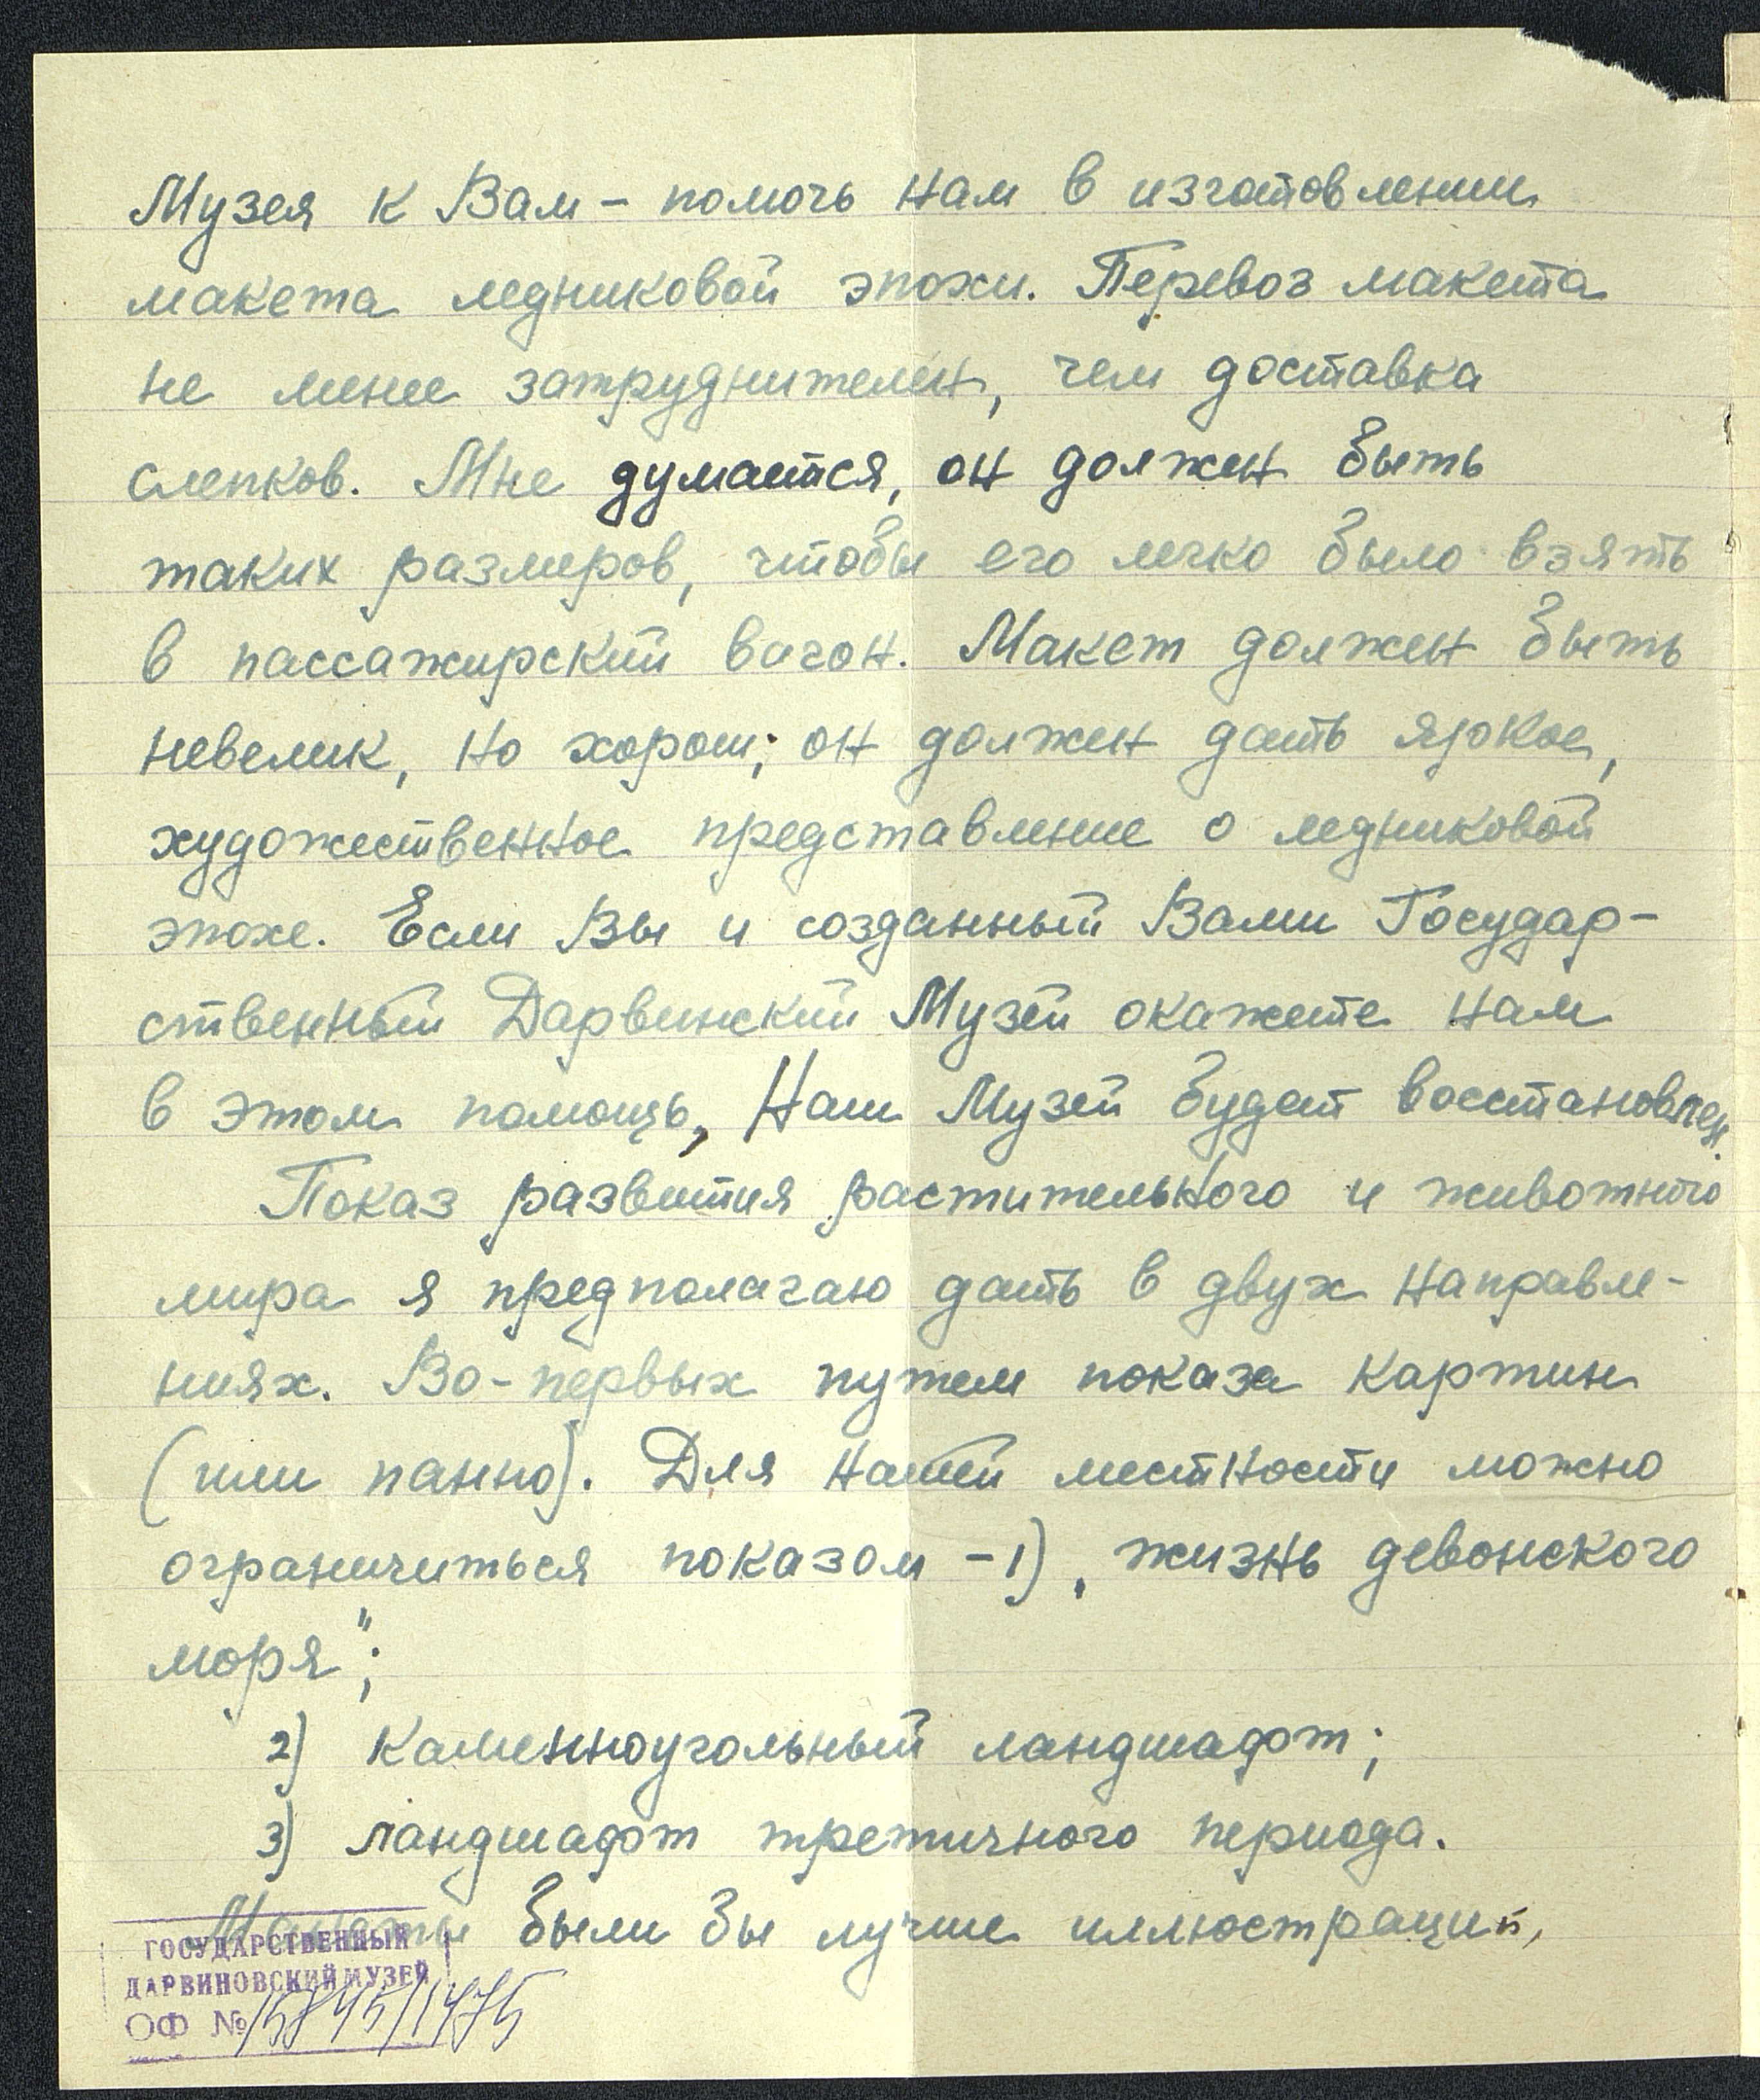 Музея к Вам – помочь нам в изготовлении
макета ледниковой эпохи. Перевоз макета
не менее затруднителен, чем доставка
слепков. Мне думается, он должен быть
таких размеров, чтобы его легко было взять
в пассажирский вагон. Макет должен быть
невелик, но хорош; он должен дать яркое,
художественное представление о ледниковой
эпохе. Если Вы и созданный Вами Государ-
ственный Дарвинский Музей окажете нам
в этом помощь, Наш Музей будет восстановлен.
Показ развития растительного и животного
мира я предполагаю дать в двух направле-
ниях. Во-первых путем показа картин
(или панно). Для нашей местности можно
ограничиться показом – 1) „жизнь девонского
моря";
2) каменноугольный ландшафт;
3) ландшафт третичного периода.
Макеты были бы лучше иллюстраций,
ГОСУДАРСТВЕННЫЙ
ДАРВИНОВСКИЙ МУЗЕЙ
ОФ №15845/1475